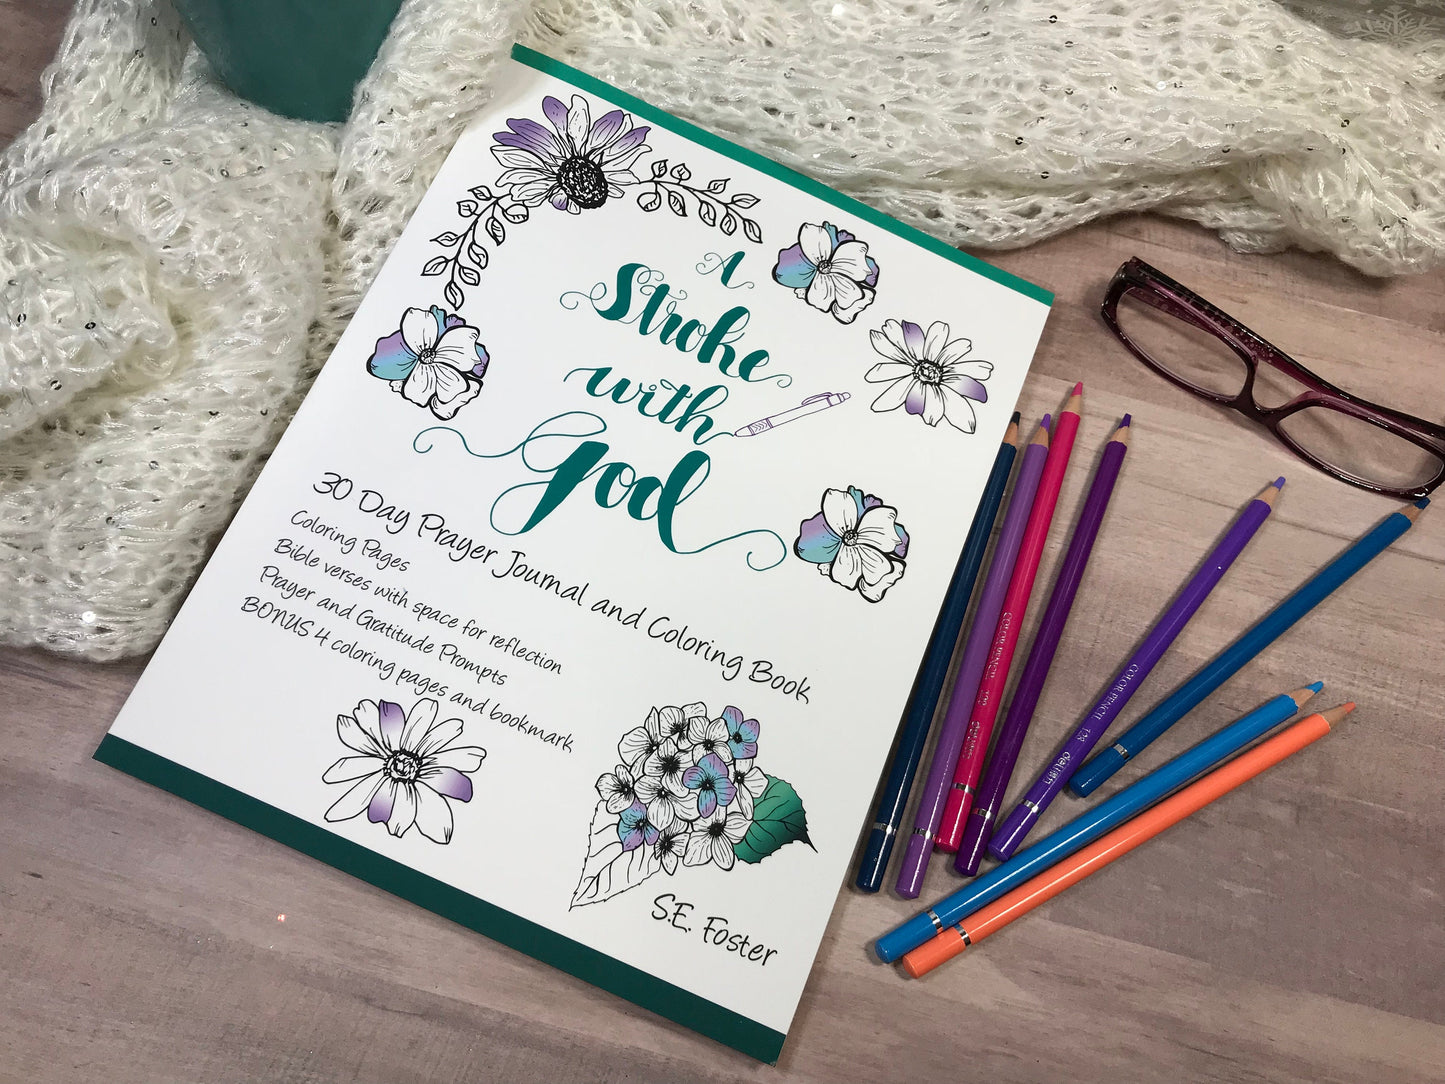 A
Stroke
with
God
30 Day Prayer Journal and Coloring Book
Coloring Pages
Bible verses with space for reflection
Prayer and Gratitude Prompts
BONUS 4 coloring pages and bookmark
S.E. Foster
COLOR PENCIL
COLOR PENCIL
deli